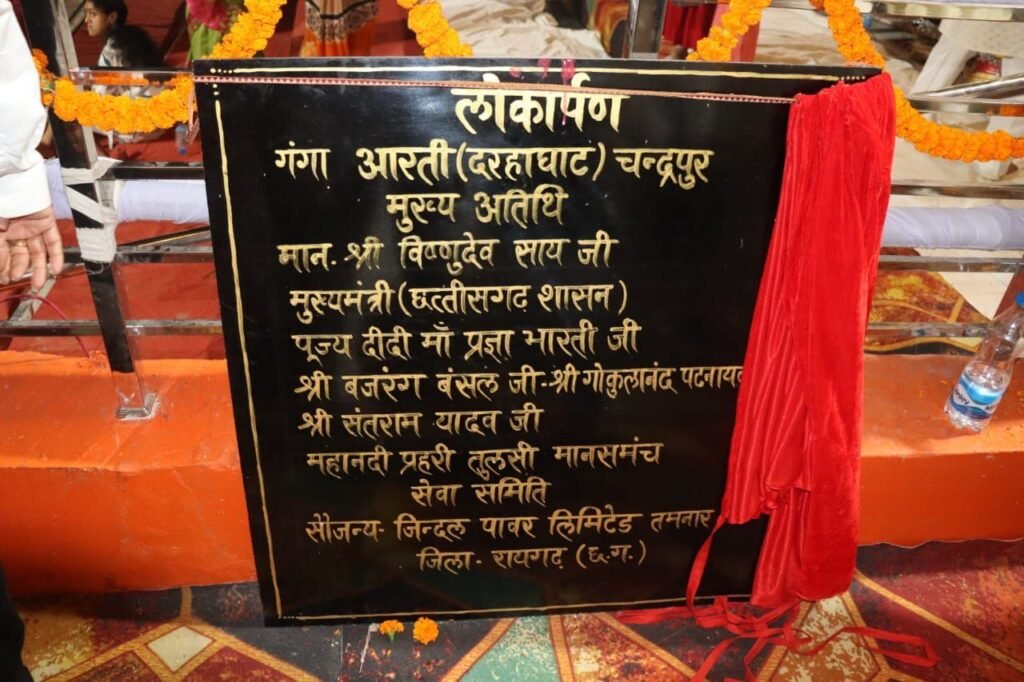 लोकार्पण
गंगा आरती (दरहाघाट) चन्द्रपुर
मुख्य अतिथि
मान. श्री विष्णुदेव साय जी
मुख्यमंत्री (छत्तीसगढ़ शासन)
पूज्य दीदी माँ प्रज्ञा भारती जी
श्री बजरंग बंसल जी-श्री गोकुलानंद
श्री संतराम यादव जी
महानदी प्रहरी तुलसी मानसमंच
सेवा समिति
सौजन्य- जिन्दल पावर लिमिटेड तमनार
जिला- रायगढ़ (छ.ग.)